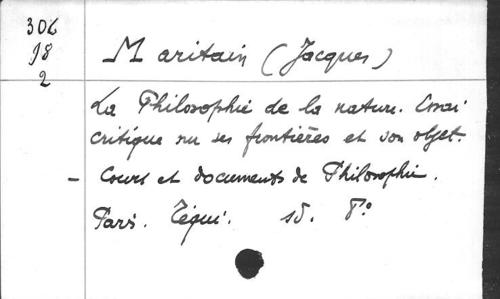 306
98
2
Maritain (Jacques)
La Philosophie de la nature. Essai
critique sur ses frontières et son objet.
- Cours et documents de Philosophie.
Paris. Téqui. sd. 8°